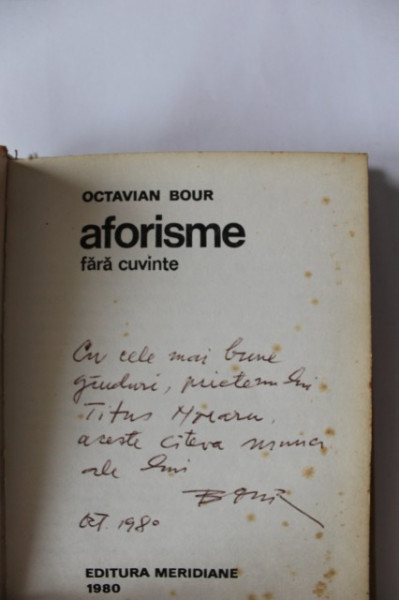 OCTAVIAN BOUR
aforisme
fără cuvinte
Cu cele mai bune
gînduri, prietenului
Titus Moraru,
aceste cîteva
ale lui
Bour
Oct. 1980
EDITURA MERIDIANE
1980